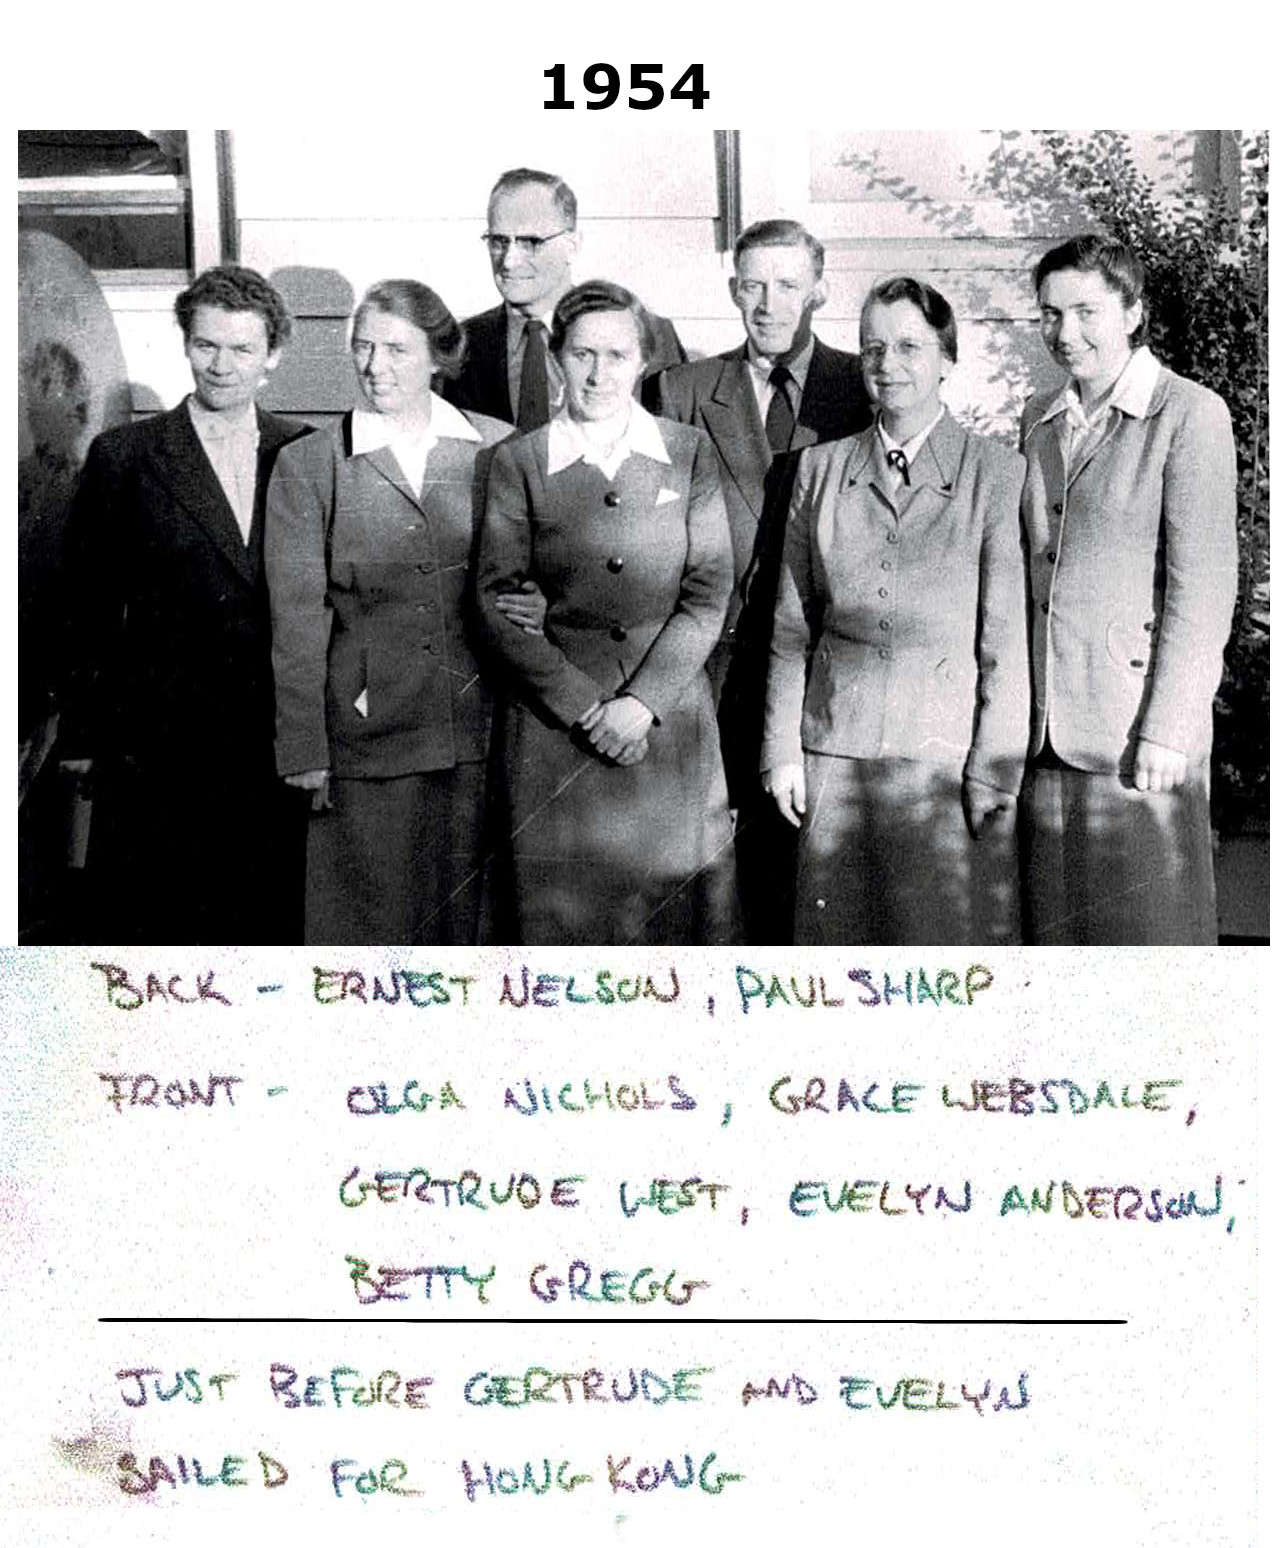 1954
BACK - ERNEST NELSON, PAUL SHARP
FRONT - OLGA NICHOLS, GRACE WEBSDALE,
GERTRUDE WEST, EVELYN ANDERSON,
BETTY GREGG
JUST BEFORE GERTRUDE AND EVELYN
SAILED FOR HONG KONG